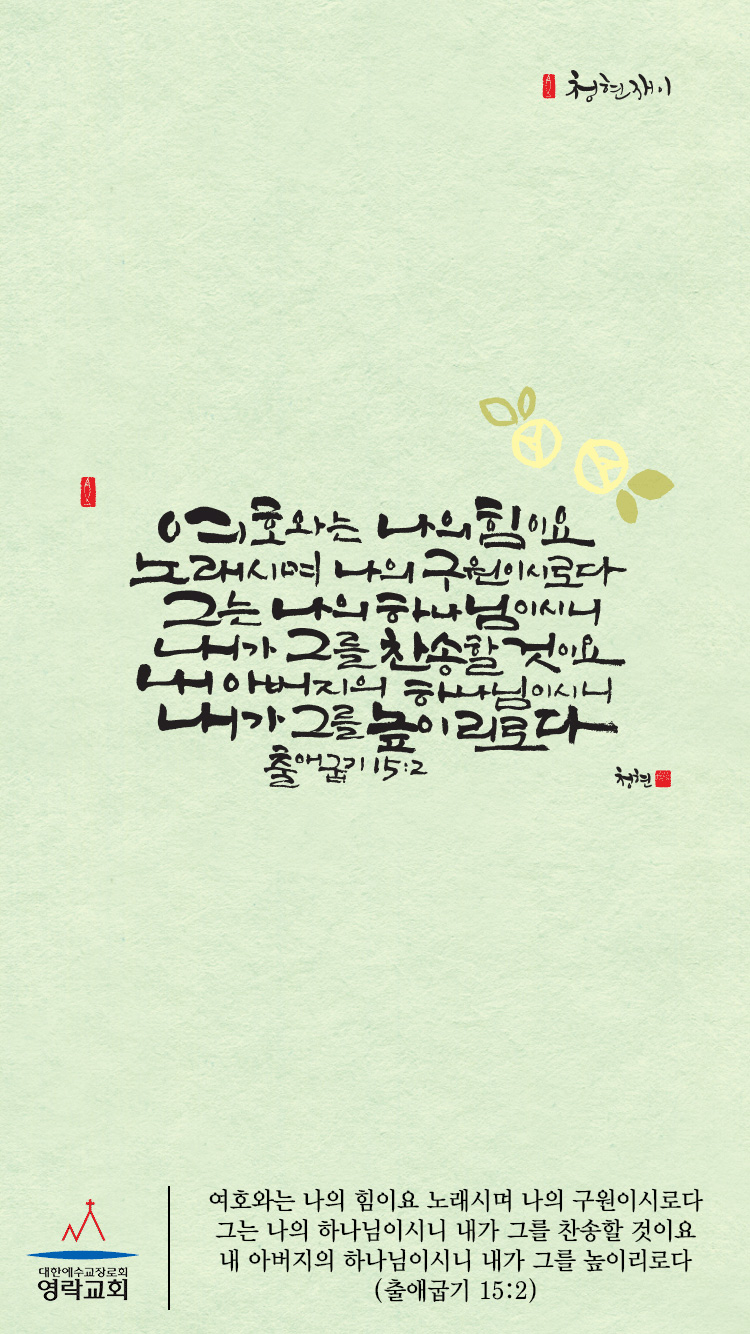 청현재이
여호와는 나의 힘이요
노래시며 나의 구원이시로다
그는 나의 하나님이시니
내가 그를 찬송할 것이요
내 아버지의 하나님이시니
내가 그를 높이리로다
출애굽기 15:2
청현
대한예수교장로회
영락교회
여호와는 나의 힘이요 노래시며 나의 구원이시로다
그는 나의 하나님이시니 내가 그를 찬송할 것이요
내 아버지의 하나님이시니 내가 그를 높이리로다
(출애굽기 15:2)